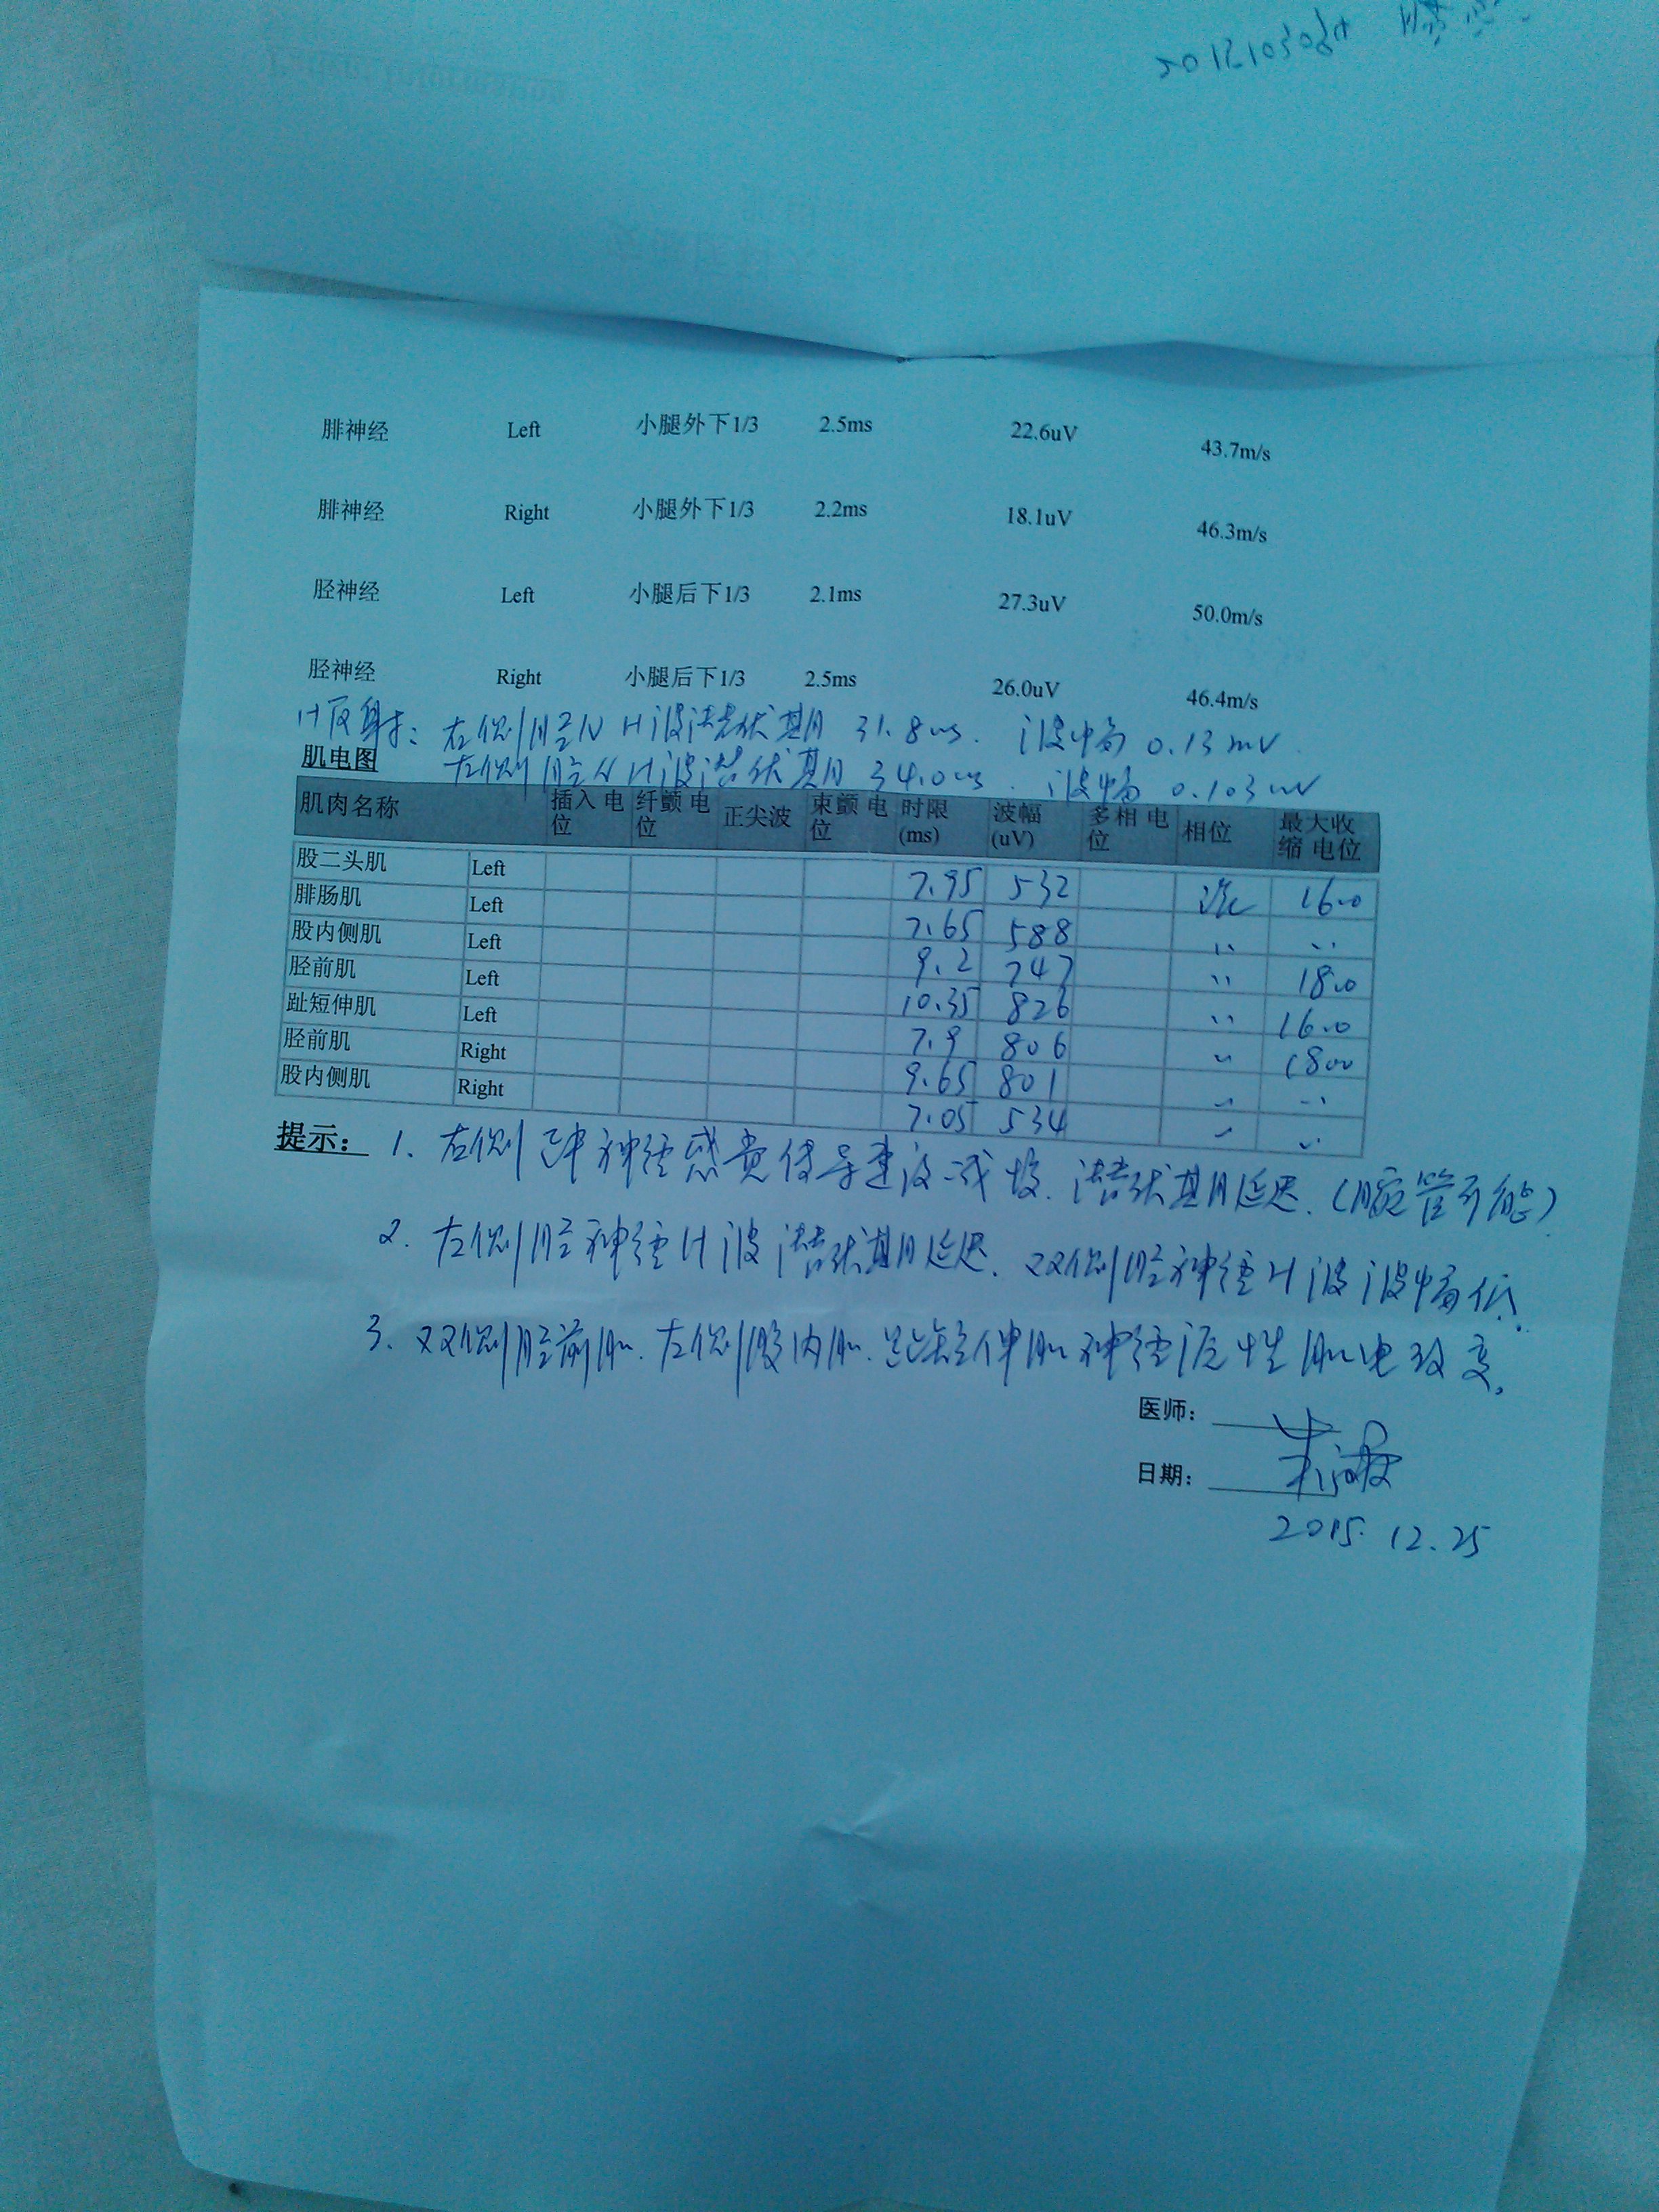 腓神经 Left 小腿外下1/3 2.5ms 22.6uV 43.7m/s
腓神经 Right 小腿外下1/3 2.2ms 18.1uV 46.3m/s
胫神经 Left 小腿后下1/3 2.1ms 27.3uV 50.0m/s
胫神经 Right 小腿后下1/3 2.5ms 26.0uV 46.4m/s
H反射: 左侧胫N H波潜伏期 31.8ms. 波幅 0.13mV.
肌电图 左侧胫N H波潜伏期 34.0ms. 波幅 0.103mV
肌肉名称 插入电位 纤颤电位 正尖波 束颤电位 时限(ms) 波幅(uV) 多相电位 相位 最大收缩电位
股二头肌 Left 7.95 532 混 1600
腓肠肌 Left 7.65 588 〃 〃
股内侧肌 Left 9.2 747 〃 1800
胫前肌 Left 10.35 826 〃 1600
趾短伸肌 Left 7.9 806 〃 1800
胫前肌 Right 9.65 801 〃 〃
股内侧肌 Right 7.05 534 〃 〃
提示: 1. 左侧正中神经感觉传导速度减慢. 潜伏期延迟. (腕管可能)
2. 左侧胫神经H波潜伏期延迟. 双侧胫神经H波波幅低.
3. 双侧胫前肌. 左侧股内肌. 趾短伸肌神经源性肌电改变.
医师:
日期:
2015. 12. 25